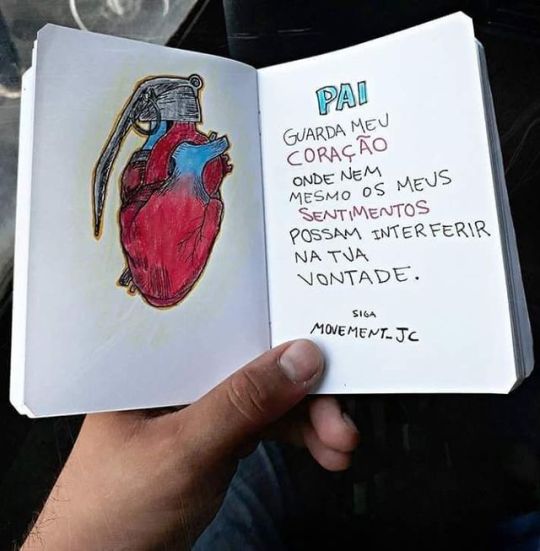 PAI
GUARDA MEU
CORAÇÃO
ONDE NEM
MESMO OS MEUS
SENTIMENTOS
POSSAM INTERFERIR
NA TUA
VONTADE.
SIGA
MOVEMENT_JC